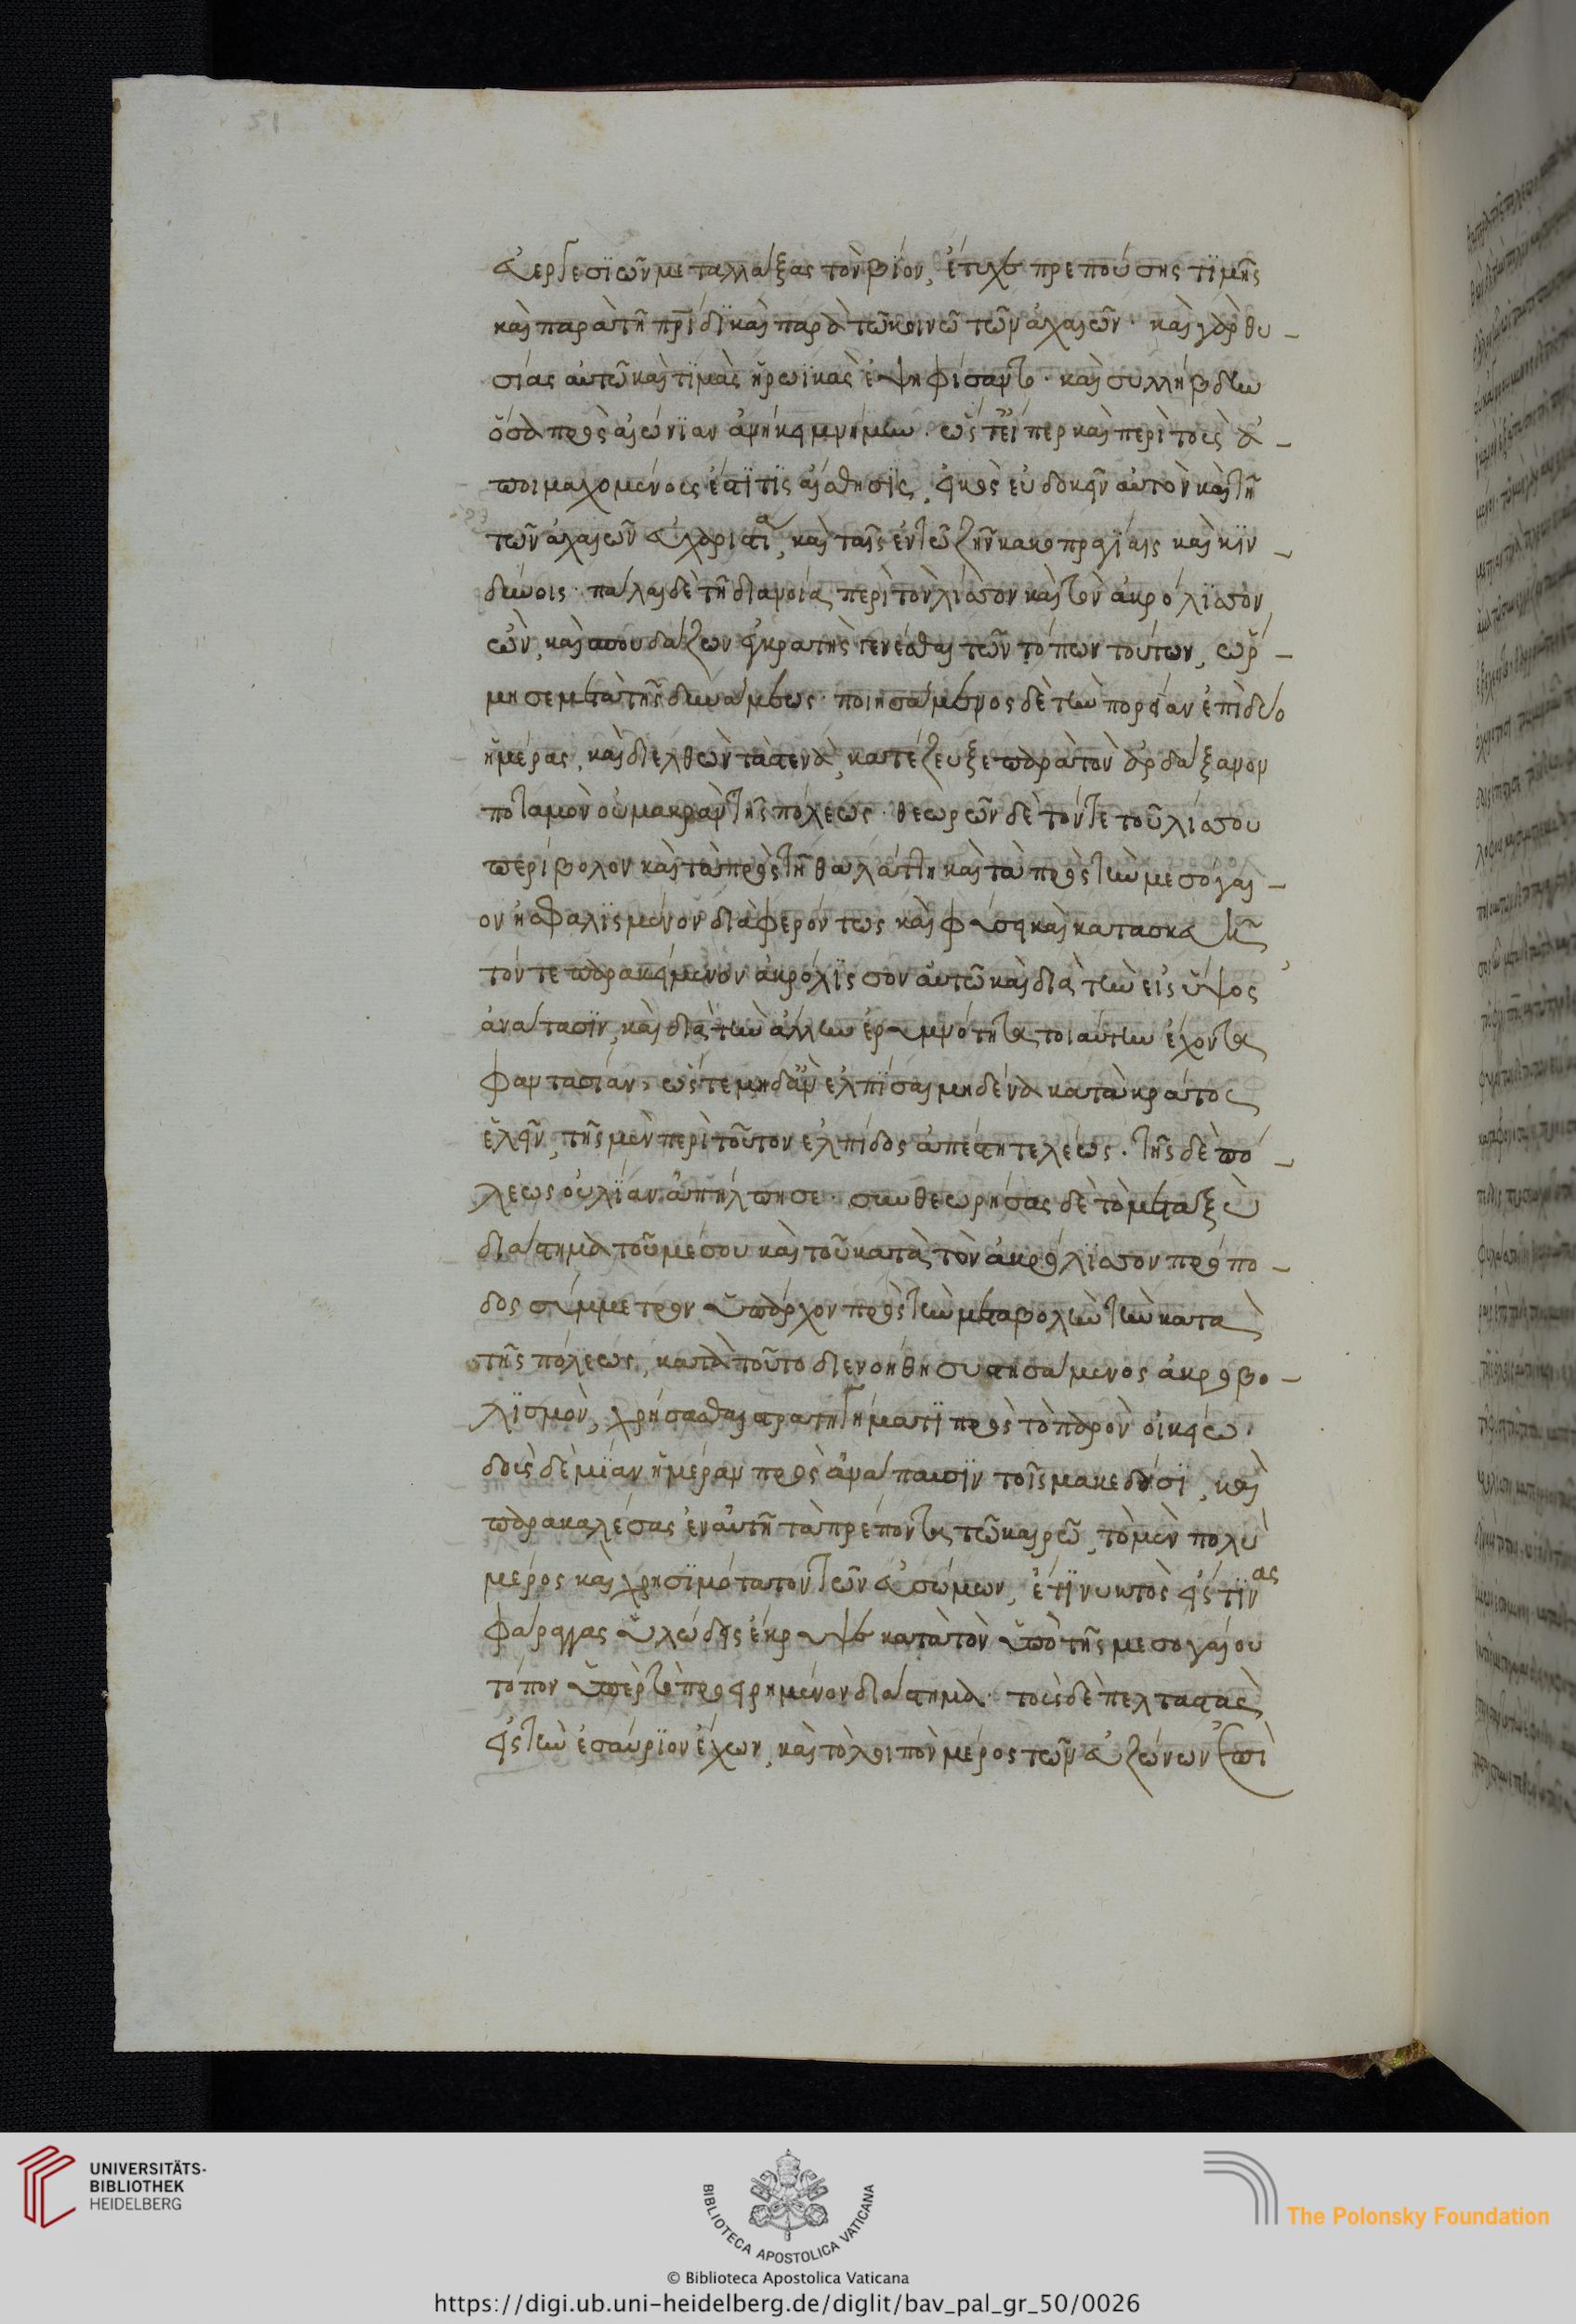 εὐεργεσϊῶν μεταλλάξας τὸν βίον, ἔτυχε πρεπούσης τϊμῆς
καὶ παρὰ τῆ πρίδϊ καὶ παρὰ τῶ κοινῶ τῶν ἀχαιῶν· καὶ γὰρ θυ-
σίας αὐτῶ καὶ τϊμὰς ἡρωϊκὰς ἐψηφίσαντο· καὶ συλλήβδην
ὅσα πρὸς αἰώνϊαν ἀνήκει μνήμην· ὥστ' εἴπερ καὶ περὶ τοὺς ἀ-
ποιχομένους ἔστϊ τϊς αἴσθησϊς, εἰκὸς εὐδοκεῖν αὐτὸν καὶ τῆ
τῶν ἀχαιῶν εὐχαριστία, καὶ ταῖς ἐν τῶ ζῆν κακοπραγίαις καὶ κϊν-
δύνοις· πάλαι δὲ τῆ διανοία περὶ τὸν λίσσον καὶ τὸν ἀκρόλϊσσον
ὢν, καὶ σπουδάζων ἐγκρατὴς γενέσθαι τῶν τόπων τούτων, ὥρ-
μησε μετὰ τῆς δυνάμεως· ποιησάμενος δὲ τὴν πορείαν ἐπὶ δύο
ἡμέρας, καὶ διελθὼν τὰ στενὰ, κατέζευξε παρὰ τὸν ἀρδάξανον
ποταμὸν οὐ μακρὰν τῆς πόλεως· θεωρῶν δὲ τόν τε τοῦ λίσσου
περίβολον καὶ τὰ πρὸς τῆ θαλάττη καὶ τὰ πρὸς τὴν μεσόγαι-
ον ἠσφαλϊσμένον διαφερόντως καὶ φύσει καὶ κατασκευῆ
τόν τε παρακείμενον ἀκρόλϊσσον αὐτῶ καὶ διὰ τὴν εἰς ὕψος
ἀνάτασϊν, καὶ διὰ τὴν ἄλλην ἐρυμνότητα τοιαύτην ἔχοντα
φαντασίαν, ὥστε μηδ' ἂν ἐλπϊσαι μηδένα κατὰ κράτος
ἑλεῖν, τῆς μὲν περὶ τοῦτον ἐλπίδος ἀπέστη τελέως· τῆς δὲ πό-
λεως οὐ λϊαν ἀπήλπησε· συνθεωρήσας δὲ τὸ μεταξὺ
διάστημα τοῦ μέσου καὶ τοῦ κατὰ τὸν ἀκρόλϊσσον πρόπο-
δος σύμμετρον ὑπάρχον πρὸς τὴν μεταβολὴν τὴν κατὰ
τῆς πόλεως, κατὰ τοῦτο διενοήθη συστησάμενος ἀκροβο-
λϊσμὸν, χρήσασθαι στρατηγήματϊ πρὸς τὸ παρὸν οἰκείω·
δοὺς δὲ μϊαν ἡμέραν πρὸς ἀνάπαυσϊν τοῖς μακεδόσϊ, καὶ
παρακαλέσας ἐν αὐτῆ τὰ πρέποντα τῶ καιρῶ, τὸ μὲν πολὺ
μέρος καὶ χρησϊμότατον τῶν εὐσώμων, ἔτϊ νυκτὸς εἴς τϊνας
φάραγγας ὑλώδεις ἔκρυψε κατὰ τὸν ὑπὸ τῆς μεσογαίου
τόπον ὑπὲρ τὸ προειρημένον διάστημα· τοὺς δὲ πελταστὰς
εἰς τὴν ἐσαύρϊον ἔχων, καὶ τὸ λοιπὸν μέρος τῶν εὐζώνων ἐπὶ
UNIVERSITÄTS-
BIBLIOTHEK
HEIDELBERG
BIBLIOTECA APOSTOLICA VATICANA
The Polonsky Foundation
© Biblioteca Apostolica Vaticana
https://digi.ub.uni-heidelberg.de/diglit/bav_pal_gr_50/0026